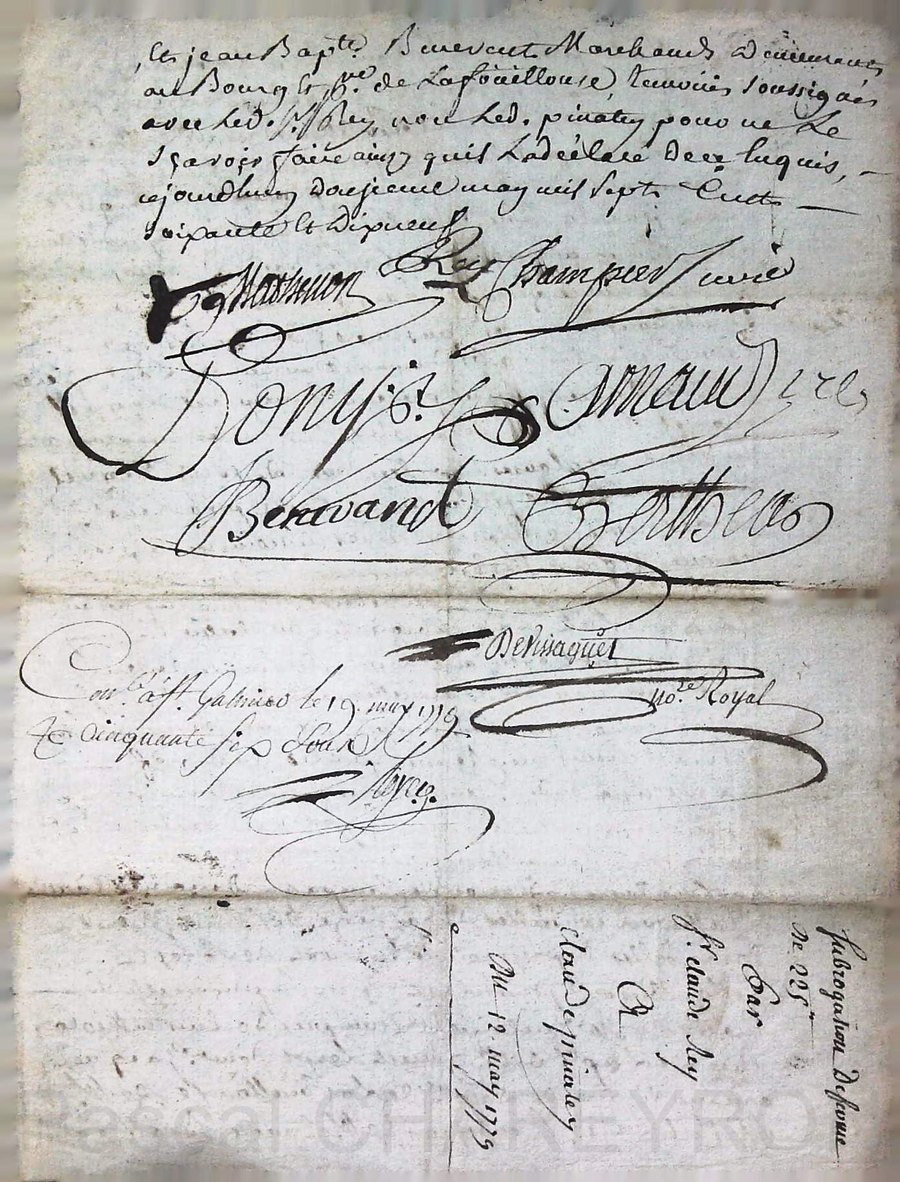 Et jean Bapte. Benevent Marchands Demeurants
au Bourg et psse. de Lafoüillouse, temoins soussignés
avec Led. Sr Rey, non Led. pinatey pour ne Le
sçavoir faire ainsy quil La declaré de ce Requis,
cejourdhuy Douzieme may mil sept Cents
soixante et dixneuf
Mathevon Rey Champier
Dony Arnaud
Benevand Berthea
Devissaguet
nore. Royal
Conlé. à St. Galmier le 19 may 1779
cinquante sept sous
Subrogation de somme
de 225"
Par
Sr. claude Rey
A
claude pinatey
Du 12 may 1779
Pascal CHAREYRON